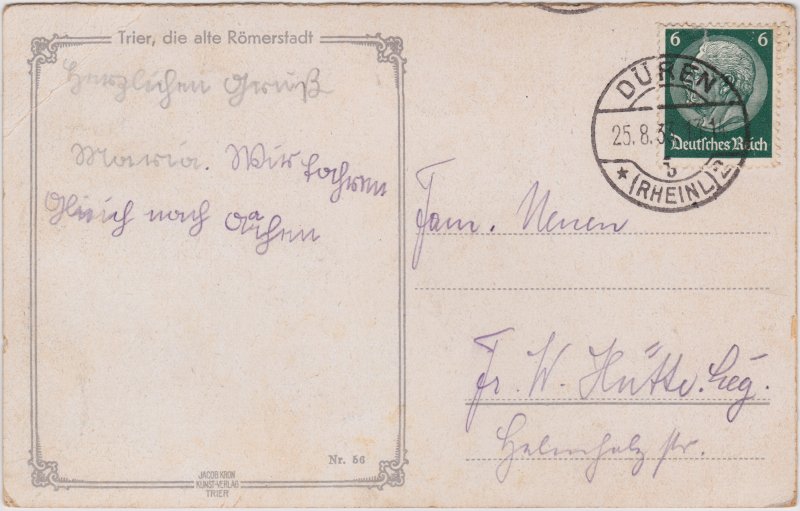 Trier, die alte Römerstadt
Herzlichen Gruß
Maria. Wir fahren
Gleich nach Aachen
Nr. 56
JACOB KRON
KUNST-VERLAG
TRIER
6 6
Deutsches Reich
DÜREN
25.8.3
b
* (RHEINL.) 2
Fam. Neuen
Fr. W. Hütte.
Helmholz str.